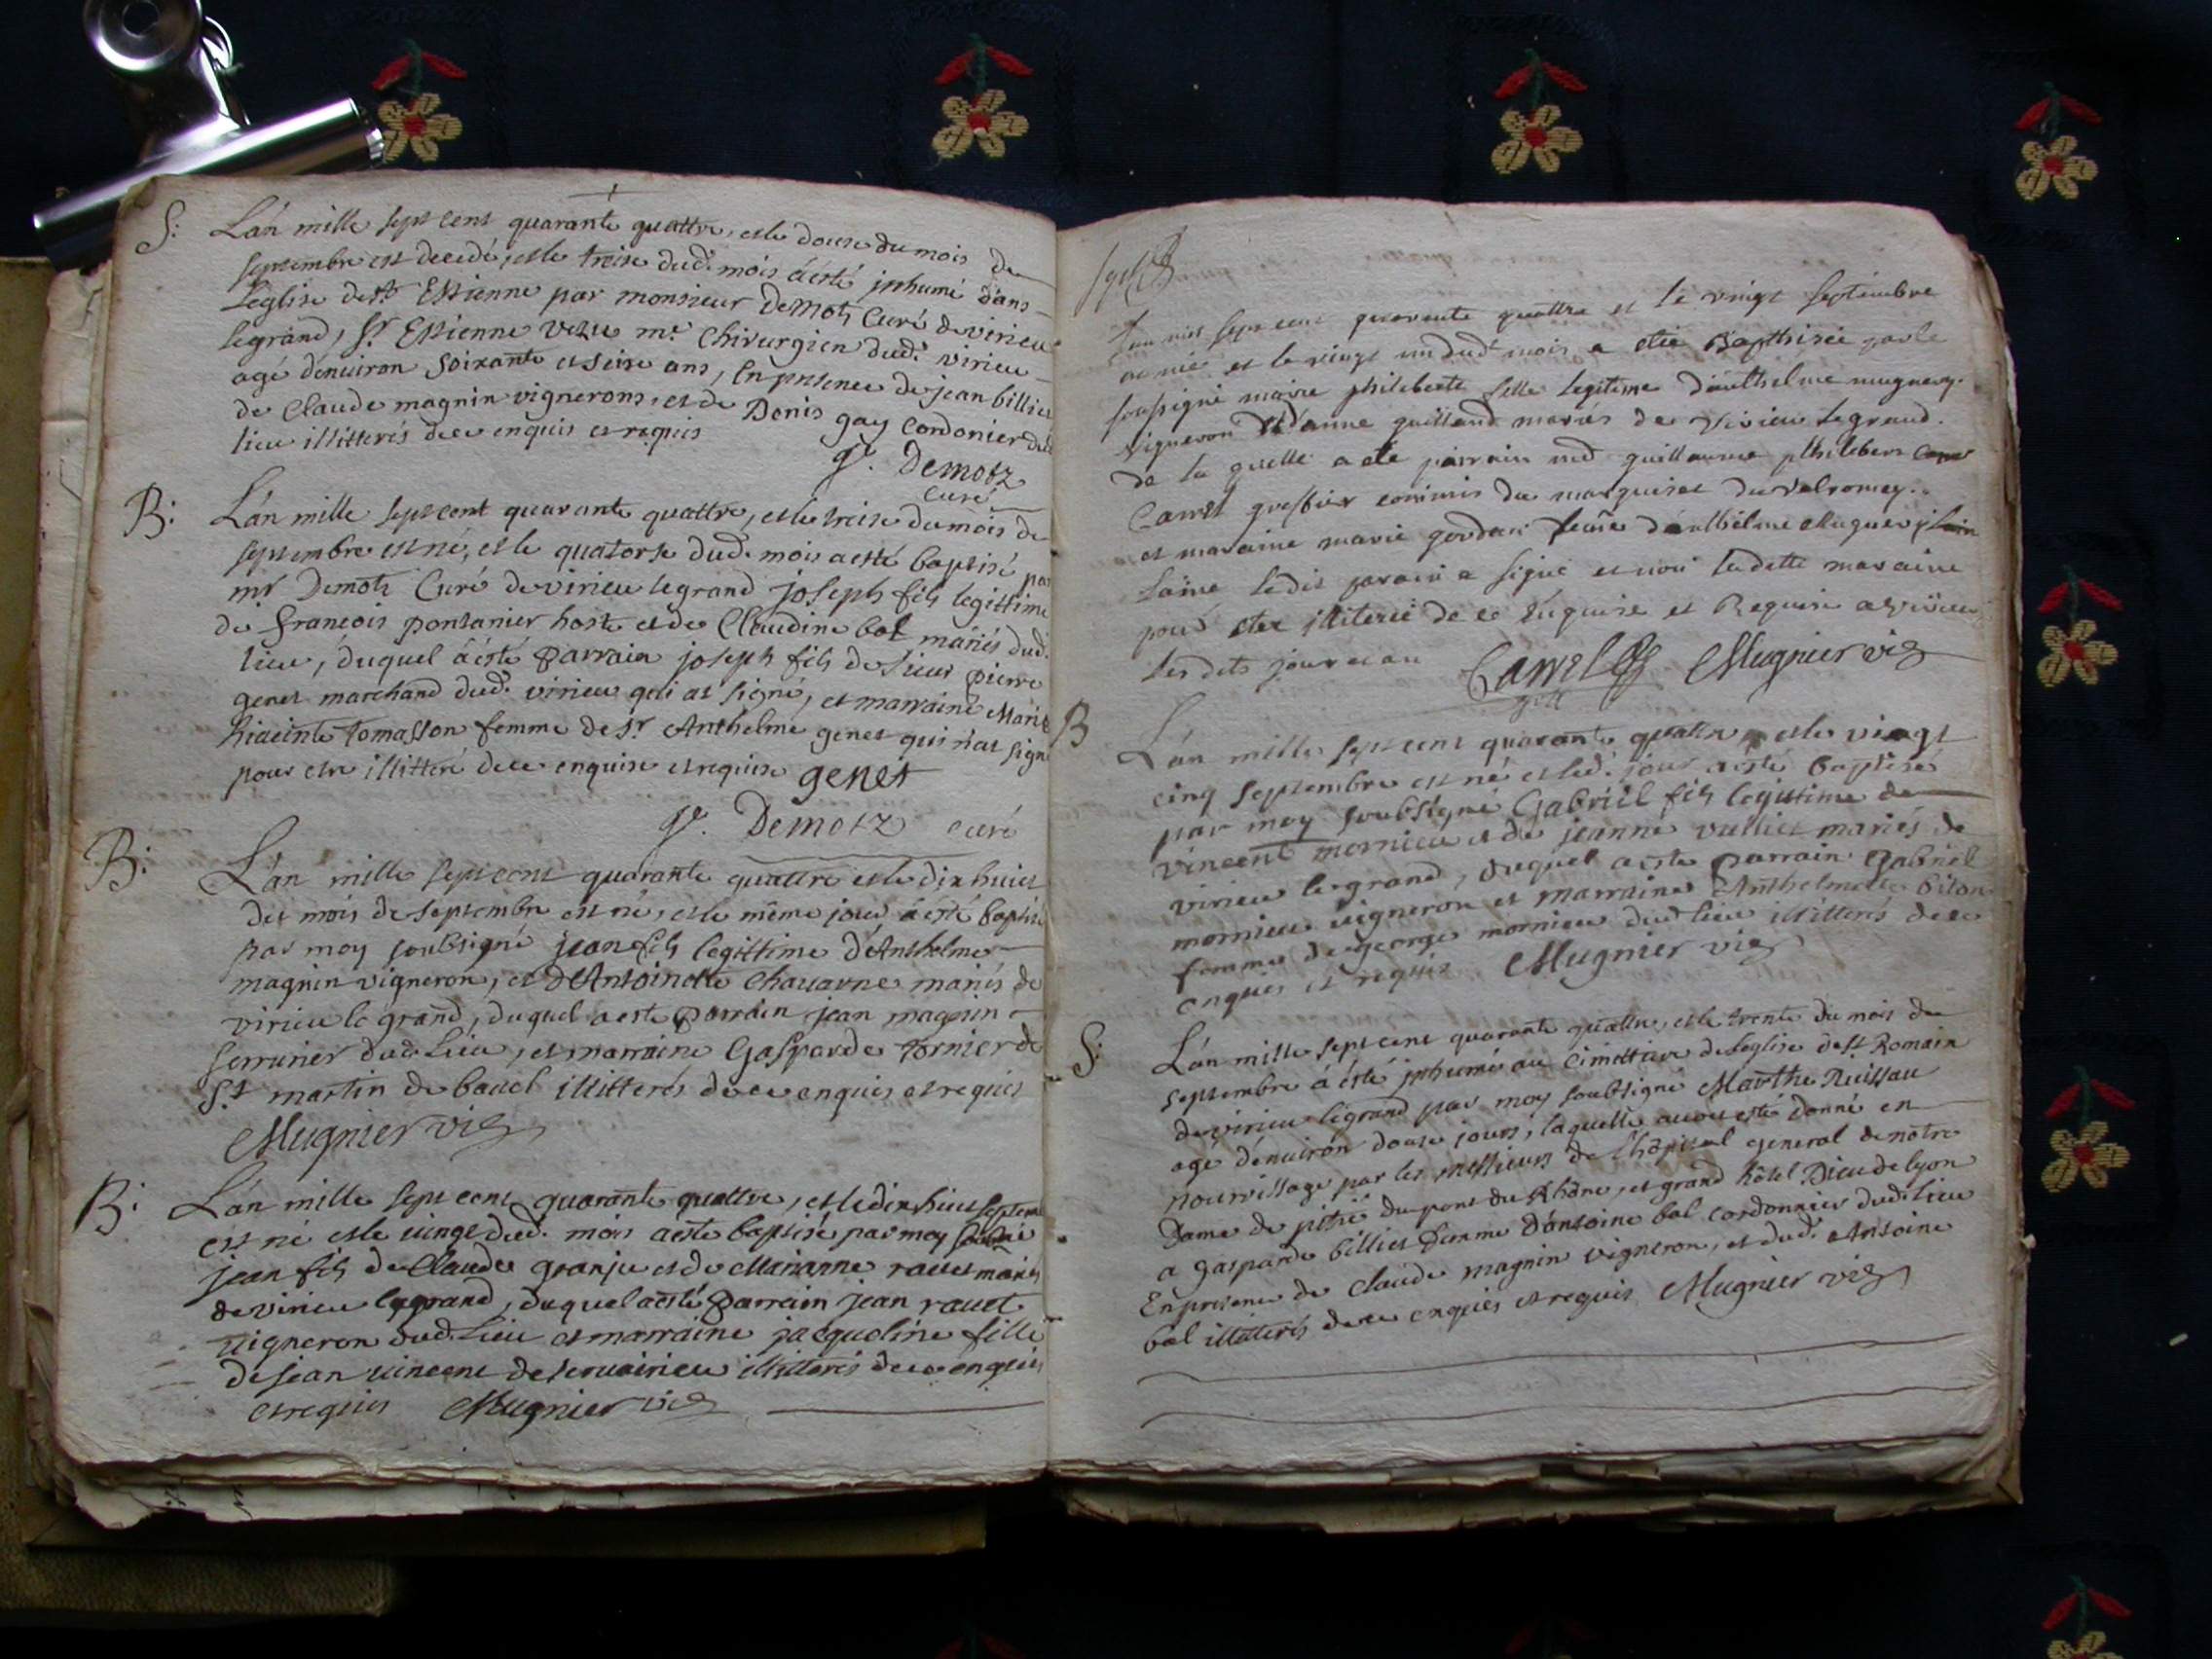 S: L'an mille sept cent quarante quattre, et le douse du mois de
septembre est decedé, et le treise dud. mois à esté jnhumé dans
L'eglise de st Estienne par monsieur Demotz Curé de virieu
legrand, Sr. Estienne me. Chirurgien dud. virieu
agé d'enuiron soixante et seise ans, En presence de jean billiet
de Claude magnin vignerons, et de Denis gay Cordonier dud
lieu illitterés de ce enquis et requis
Demotz
Curé
B: L'an mille sept cent quarante quattre, et le treise du mois de
septembre est né, et le quatorse dud. mois a esté baptisé par
mr Demotz Curé de virieu legrand joseph fils legittime
de francois pontanier hoste et de Claudine bal mariés dud.
lieu, duquel à esté parrain joseph fils de sieur pierre
genet marchand dud. virieu qui at signé, et marraine Marie
hiacinte tomasson femme de sr. Anthelme genet qui n'at signé
pour etre illitteré de ce enquise et requise genet
Demotz curé
B: L'an mille sept cent quarante quattre et le dix huict
det mois de septembre est né, et le même jour à esté baptisé
par moy soubsigné jean fils legittime d'Anthelme
magnin vigneron, et d'Antoinette Chauarne mariés de
virieu le grand, duquel a esté parrain jean magnin
serrurier dud. Lieu, et marraine Gasparde tornier de
St martin de bauel illitterés de ce enquis et requis
Mugnier vic
B: L'an mille sept cent quarante quattre, et le dix huict septembre
est né et le uingt dud. mois a esté baptisé par moy
jean fils de Claude granje et de Marianne rauet mariés
de virieu legrand, duquel a esté parrain jean rauet
uigneron dud. Lieu et marraine jacqueline fille
de jean uincent de illitterés de ce enquis
et requis Mugnier vic
L'an mil sept cent quarante quattre et le vingt septembre
né et le vingt un dud mois a etié Bapthisée par le
soussigné marie philiberte fille legitime d'anthelme mugnery
vigneron et d'anne guilland mariés de Virieu legrand.
de la quelle a ete parrain guillaume philibert
Carrel greffier commis du marquisat du Valromey.
et maraine marie gordan feme d'anthelme Muguery
laine ledit parain a signé et non ladette maraine
pour etre illiterée de ce Enquise et Requise a virieu
les dits jour et an Carrel Mugnier vic
B L'an mille sept cent quarante quattre et le vingt
cinq septembre est né et led. jour a esté baptisé
par moy soubsigné Gabriel fils legittime de
vincent mornieu et de jeanne vulliet mariés de
virieu legrand, duquel a esté parrain Gabriel
mornieu uigneron et marraine Anthelmette biton
femme de george mornieu dud lieu illitterés de ce
enquis et requis Mugnier vic
S: L'an mille sept cent quarante quattre, et le trente du mois de
septembre à esté jnhumé au Cimettiere de L'eglise de st Romain
de virieu legrand par moy soubsigné Marthe Ruissau
agé d'enuiron douse jours, laquelle auoit esté donné en
nourrissage par les messieurs de l'hôpital general de notre
Dame de pitié du pont du Rhône, et grand hôtel Dieu de lyon
a gasparde billiet femme d'antoine bal cordonnier dud. lieu
En presence de claude magnin vigneron, et dud. Antoine
bal illitterés de ce enquis et requis Mugnier vic